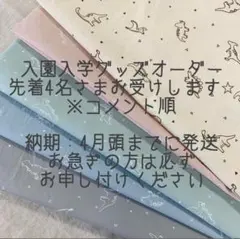 入園入学グッズオーダー
先着4名さまお受けします!
※コメント順
納期:4月頭までに発送
お急ぎの方は必ず
お申し付けください